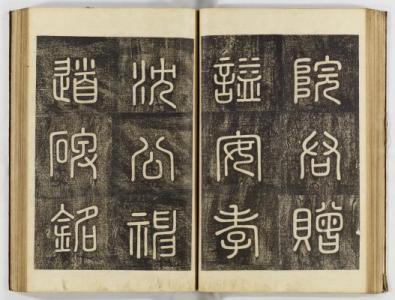 院
贈
諡安孝
沈公神
道碑銘